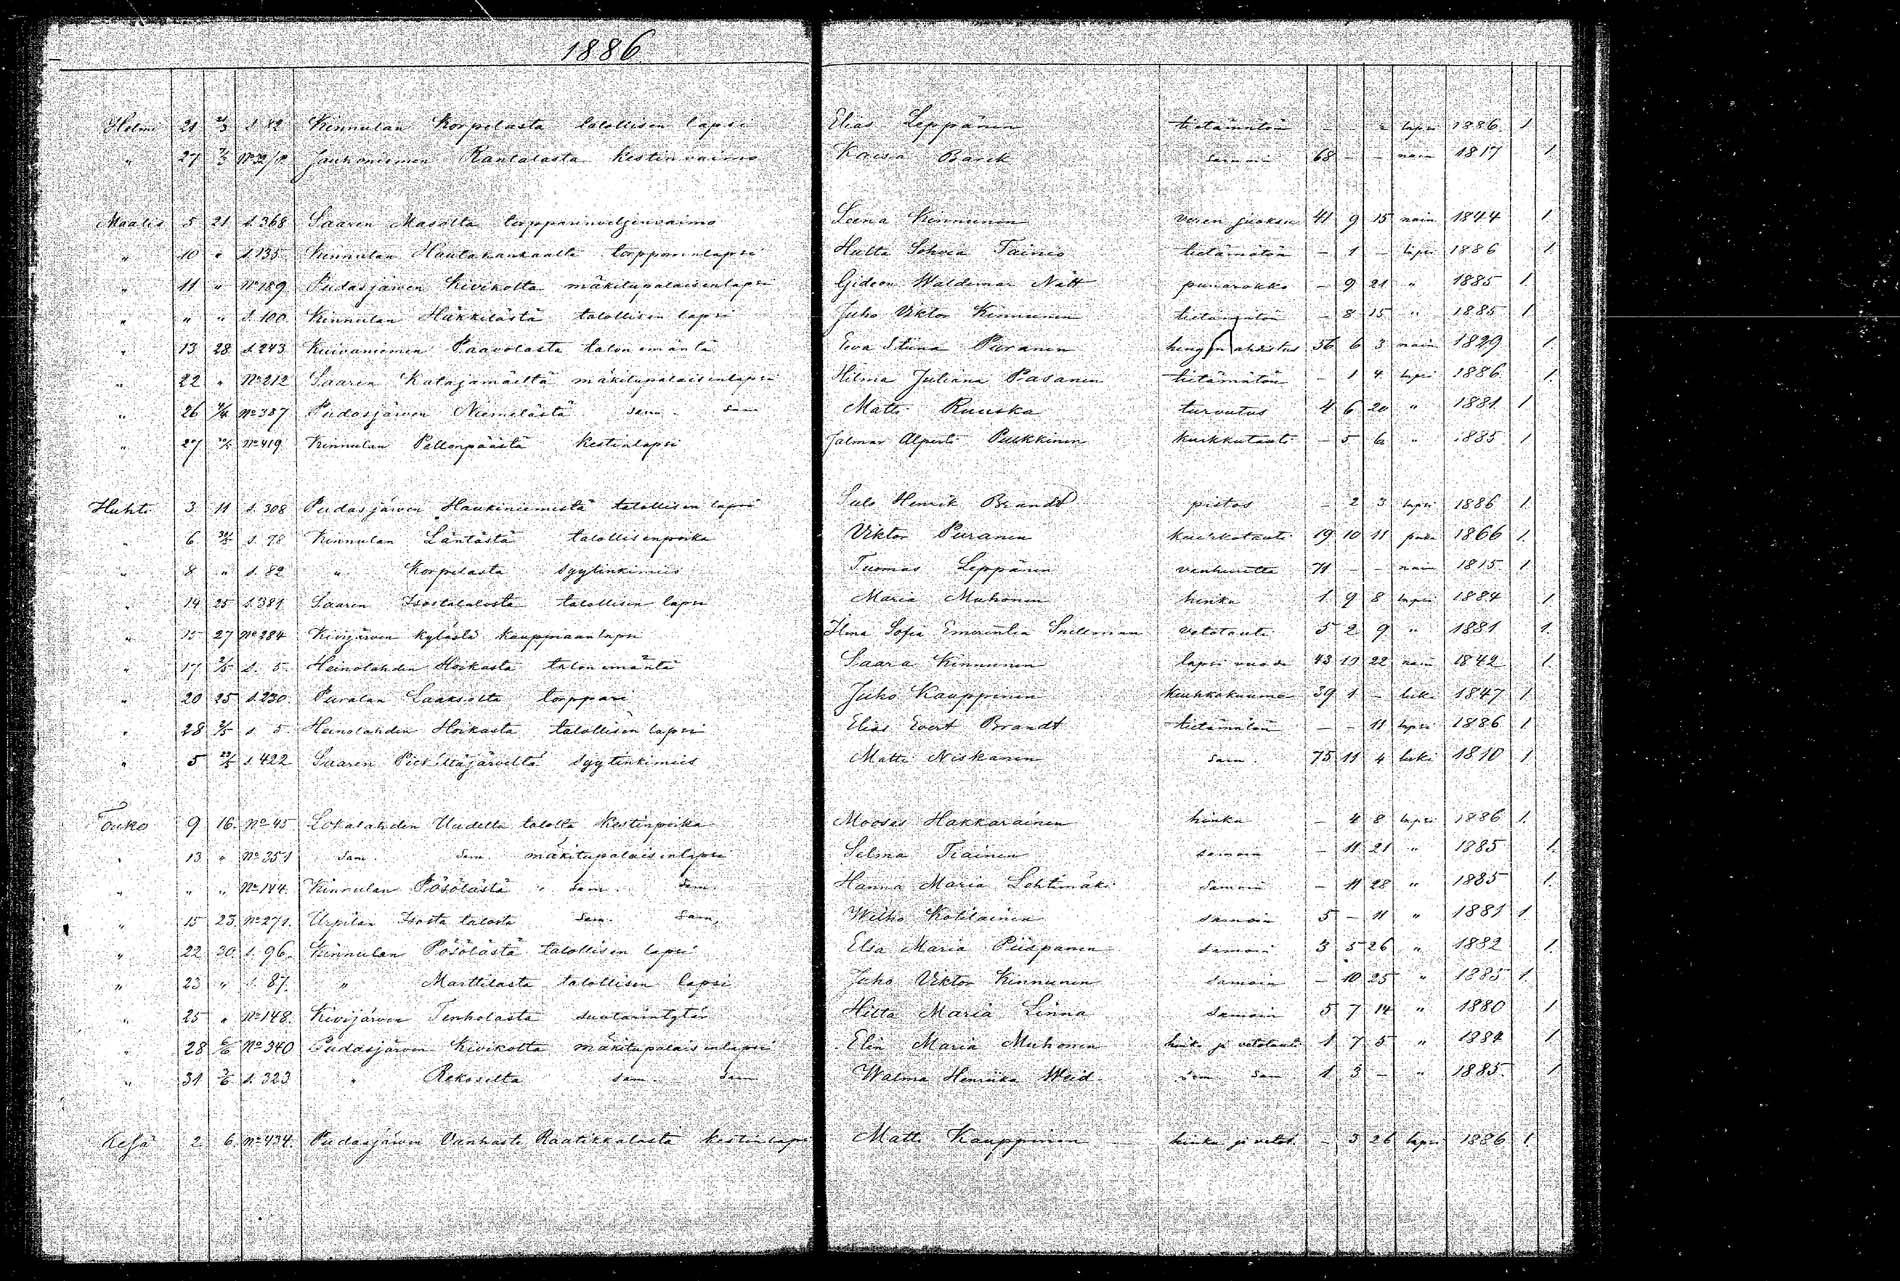 1886
Helmi 21 2/3 s. 82 Kinnulan Korpelasta talollisen lapsi Elias Leppänen tietämätön - - 2 lapsi 1886 1
" 27 No 32/12 Jauhoniemen Rantalasta kestin vaimo Kaisa Barck samoin 68 - - nain 1817 1
Maalis 5 21 s. 368 Saaren Masolta torpparinveljenvaimo Leena Kinnunen veren juoksu 41 9 15 nain 1844 1
" 10 " s. 135 Kinnulan Hautakankaalta torpparinlapsi Hulta Sohvia Tainio tietämätön - 1 - lapsi 1886 1
" 11 " No 189 Pudasjärven Kivikolta mäkitupalaisenlapsi Gideon Waldemar Nätt punarokko - 9 21 " 1885 1
" " " s. 100 Kinnulan Häkkilästä talollisen lapsi Juho Viktor Kinnunen tietämätön - 8 15 " 1885 1
" 13 28 s. 243 Kuivaniemen Paavolasta talon emäntä Eeva Stiina Puranen hengen ahdistus 56 6 3 nain 1829 1
" 22 " No 212 Saaren Katajamäeltä mäkitupalaisenlapsi Hilma Juliana Pasanen tietämätön - 1 4 lapsi 1886 1
" 26 4/4 No 387 Pudasjärven Niemelästä sam. sam Matti Ruuska turvotus 4 6 20 " 1881 1
" 27 No 419 Kinnulan Pellonpäästä kestinlapsi Jalmar Alpert Pulkkinen kurkkutauti - 5 6 " 1885 1
Huhti 3 11 s. 308 Pudasjärven Haukiniemestä talollisen lapsi Salo Henrik Brandt pistos - 2 3 lapsi 1886 1
" 6 s. 78 Kinnulan Läntästä talollisenpoika Viktor Puranen kurkkutauti 19 10 11 poika 1866 1
" 8 " s. 82 " Korpelasta syytinkimies Tuomas Leppänen vanhuutta 71 - - nain 1815 1
" 14 25 s. 381 Saaren Isostatalosta talollisen lapsi Maria Muhonen hinku 1 9 8 lapsi 1884 1
" 15 27 No 284 Kivijärven kylästä kauppiaanlapsi Ilma Sofia Emerentia Snellman vetotauti 5 2 9 " 1881 1
" 17 2/5 s. 5 Heinolahden Hoikasta talonemäntä Saara Kinnunen lapsi vuode 43 11 22 nain 1842 1
" 20 25 s. 230 Puralan Laaksolta torppari Juho Kauppinen keuhkokuume 39 1 - leski 1847 1
" 28 2/5 s. 5 Heinolahden Hoikasta talollisen lapsi Elias Evert Brandt tietämätön - - 11 lapsi 1886 1
" 5 s. 422 Saaren syytinkimies Matti Niskanen sam. 75 11 4 leski 1810 1
Touko 9 16 No 45 Lokalahden Uudelta talolta kestinpoika Mooses Hakkarainen hinku - 4 8 lapsi 1886 1
" 13 " No 351 sam. sam. mäkitupalaisenlapsi Selma Tiainen samoin - 11 21 " 1885 1
" " " No 144 Kinnulan Pösölästä sam. sam. Hanna Maria Lehtimäki samoin - 11 28 " 1885 1
" 15 23 No 271 Urpilan Isosta talosta sam. sam. Wilho Kotilainen samoin 5 - 11 " 1881 1
" 22 30 s. 96 Kinnulan Pösölästä talollisen lapsi Elsa Maria Piispanen samoin 3 5 26 " 1882 1
" 23 " s. 87 " Marttilasta talollisen lapsi Juho Viktor Kinnunen samoin - 10 25 " 1885 1
" 25 " No 148 Kivijärven Tenholasta suutarintytär Hilta Maria Linna samoin 5 7 14 " 1880 1
" 28 6/6 No 340 Pudasjärven Kivikolta mäkitupalaisenlapsi Elin Maria Muhonen hinku ja vetotauti 1 7 5 " 1884 1
" 31 s. 323 " Rekoselta sam. sam Walma Henriika Weid sam sam 1 3 - " 1885 1
Kesä 2 6 No 434 Pudasjärven Vanhasta Raatikkalasta kestinlapsi Matti Kauppinen hinku ja vetot. - 3 26 lapsi 1886 1